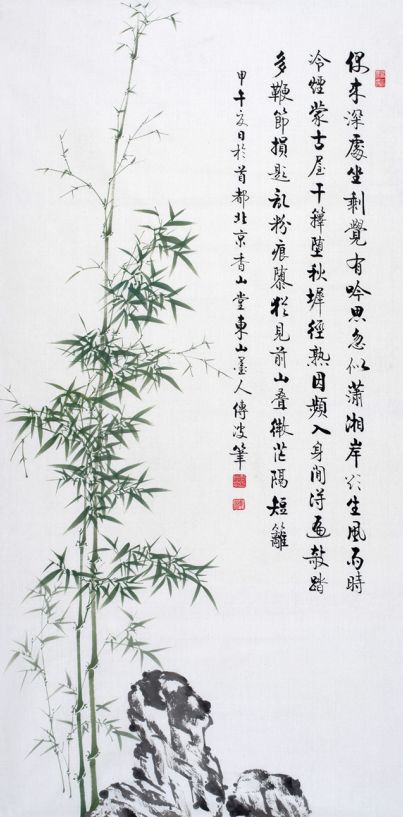 偶来深處坐剩覺有吟思忽似瀟湘岸欲生風雨時
冷煙蒙古屋干籜墮秋墀徑熟因頻入身閒得遍敲踏
多鞭節損題乱粉痕隳猶見前山疊微茫隔短籬
甲午夏日於首都北京香山堂東山墨人傳波筆